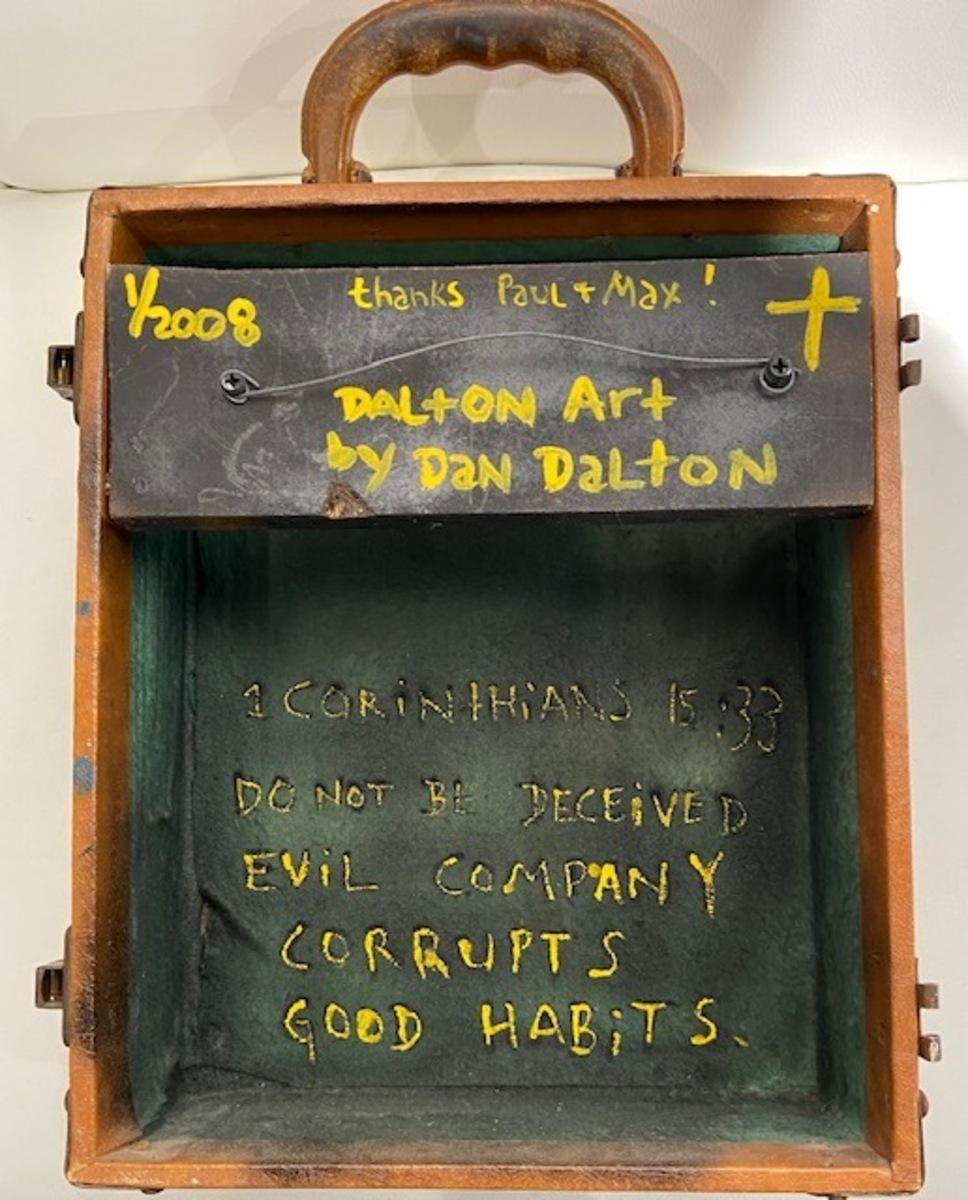 1/2008
thanks Paul + Max !
DALtON Art
by DaN DaLtoN
1 CORiNtHiANS 15:33
DO NOT BE DECEiVED
EViL COMPANY
CORRUPTS
GOOD HABiTS.